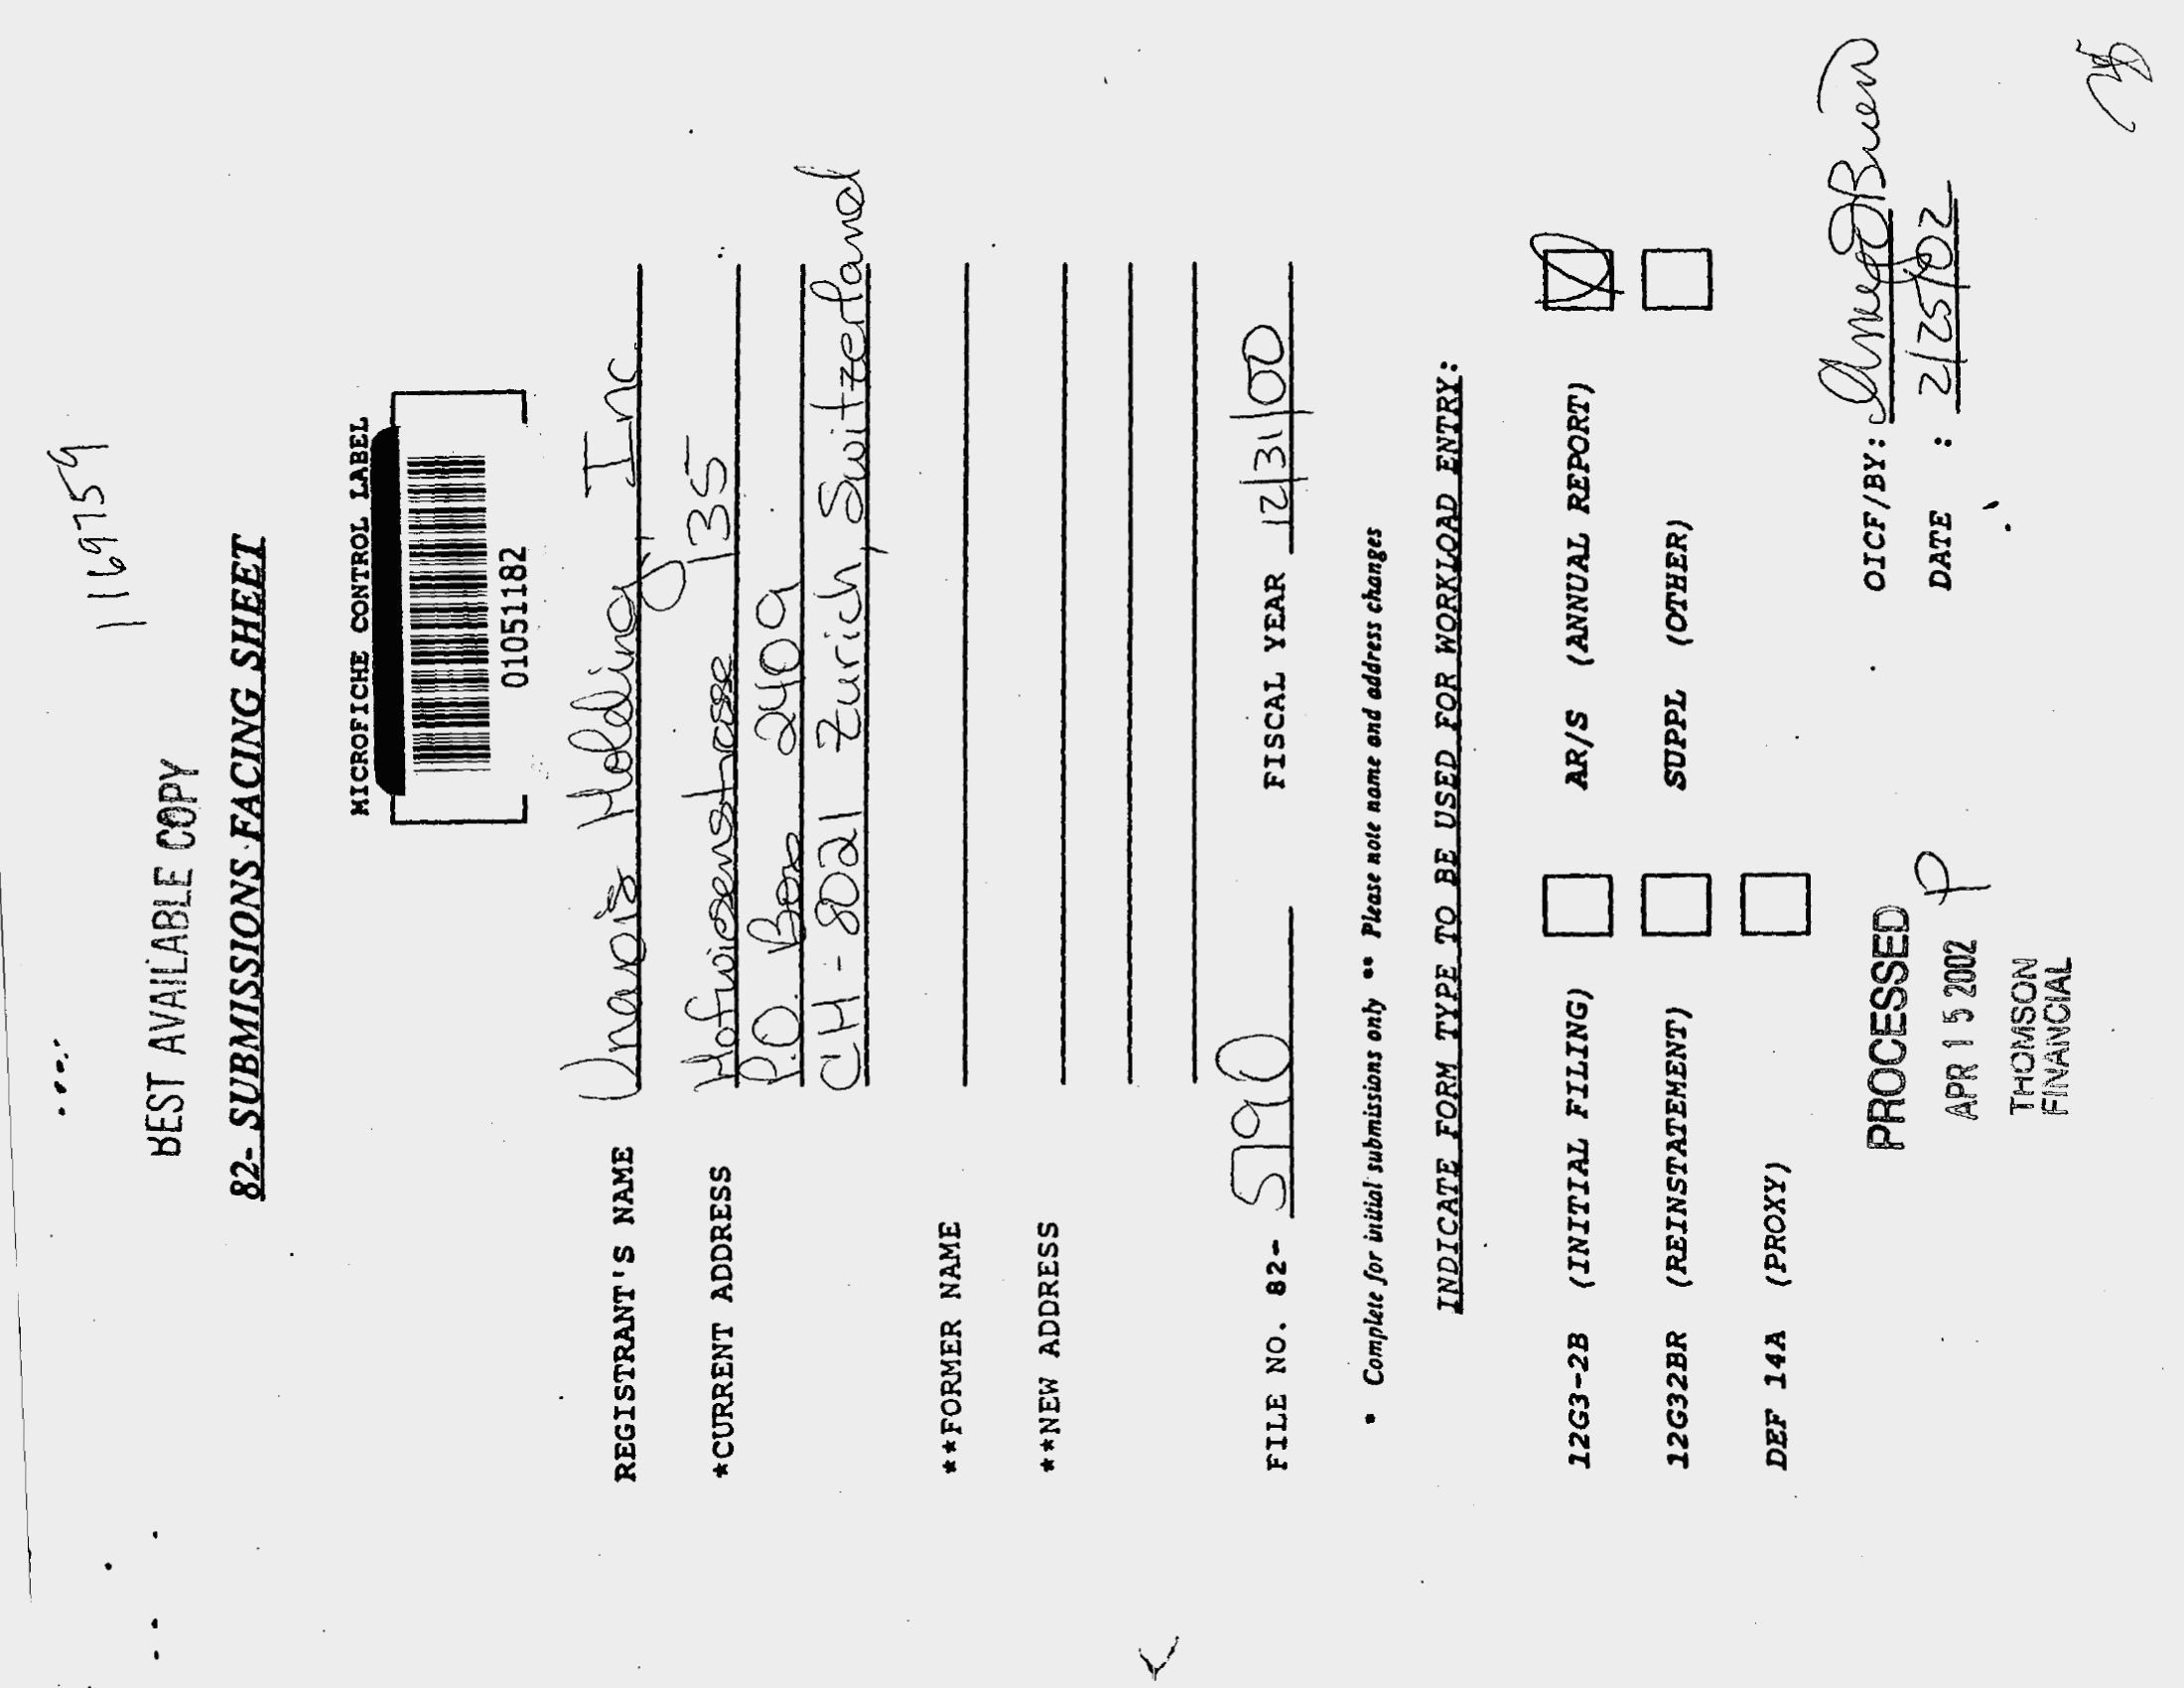 1169759
BEST AVAILABLE COPY
82- SUBMISSIONS FACING SHEET
MICROFICHE CONTROL LABEL
01051182
REGISTRANT'S NAME Unaxis Holding Inc
*CURRENT ADDRESS Hofwiesenstrasse 135
P.O. Box 2409
CH-8021 Zurich, Switzerland
**FORMER NAME
**NEW ADDRESS
FILE NO. 82- 5190 FISCAL YEAR 12/31/00
* Complete for initial submissions only ** Please note name and address changes
INDICATE FORM TYPE TO BE USED FOR WORKLOAD ENTRY:
12G3-2B (INITIAL FILING) AR/S (ANNUAL REPORT)
12G32BR (REINSTATEMENT) SUPPL (OTHER)
DEF 14A (PROXY)
OICF/BY:
DATE : 2/25/02
PROCESSED
APR 15 2002
THOMSON
FINANCIAL